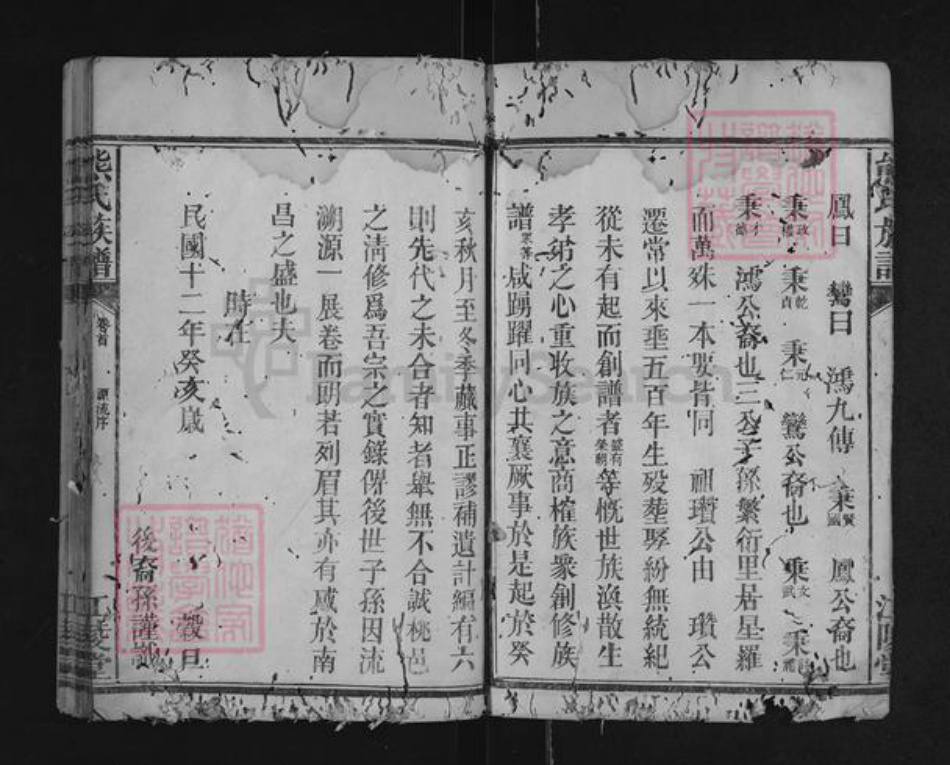 鳳曰 鸞曰 鴻九傳 秉賢國 鳳公裔也
秉政 秉乾貞 秉元仁 鸞公裔也 秉文武 秉
秉 鴻公裔也三公子孫繁衍里居星羅
而萬殊一本要皆同 祖瓚公由 瓚公
遷常以來垂五百年生歿塟娶紛無統紀
從未有起而創譜者懿有榮朝等慨世族渙散生
孝弟之心重收族之意商榷族衆創修族
譜衆等咸踴躍同心共襄厥事於是起於癸
亥秋月至冬季蕆事正謬補遺計編有六
則先代之未合者知者舉無不合誠桃邑
之清修爲吾宗之實錄俾後世子孫因流
溯源一展卷而明若列眉其亦有感於南
昌之盛也夫
時在
民國十二年癸亥歲 穀旦
後裔孫謹識
熊氏族譜 卷首 源流序 江陵堂
FamilySearch